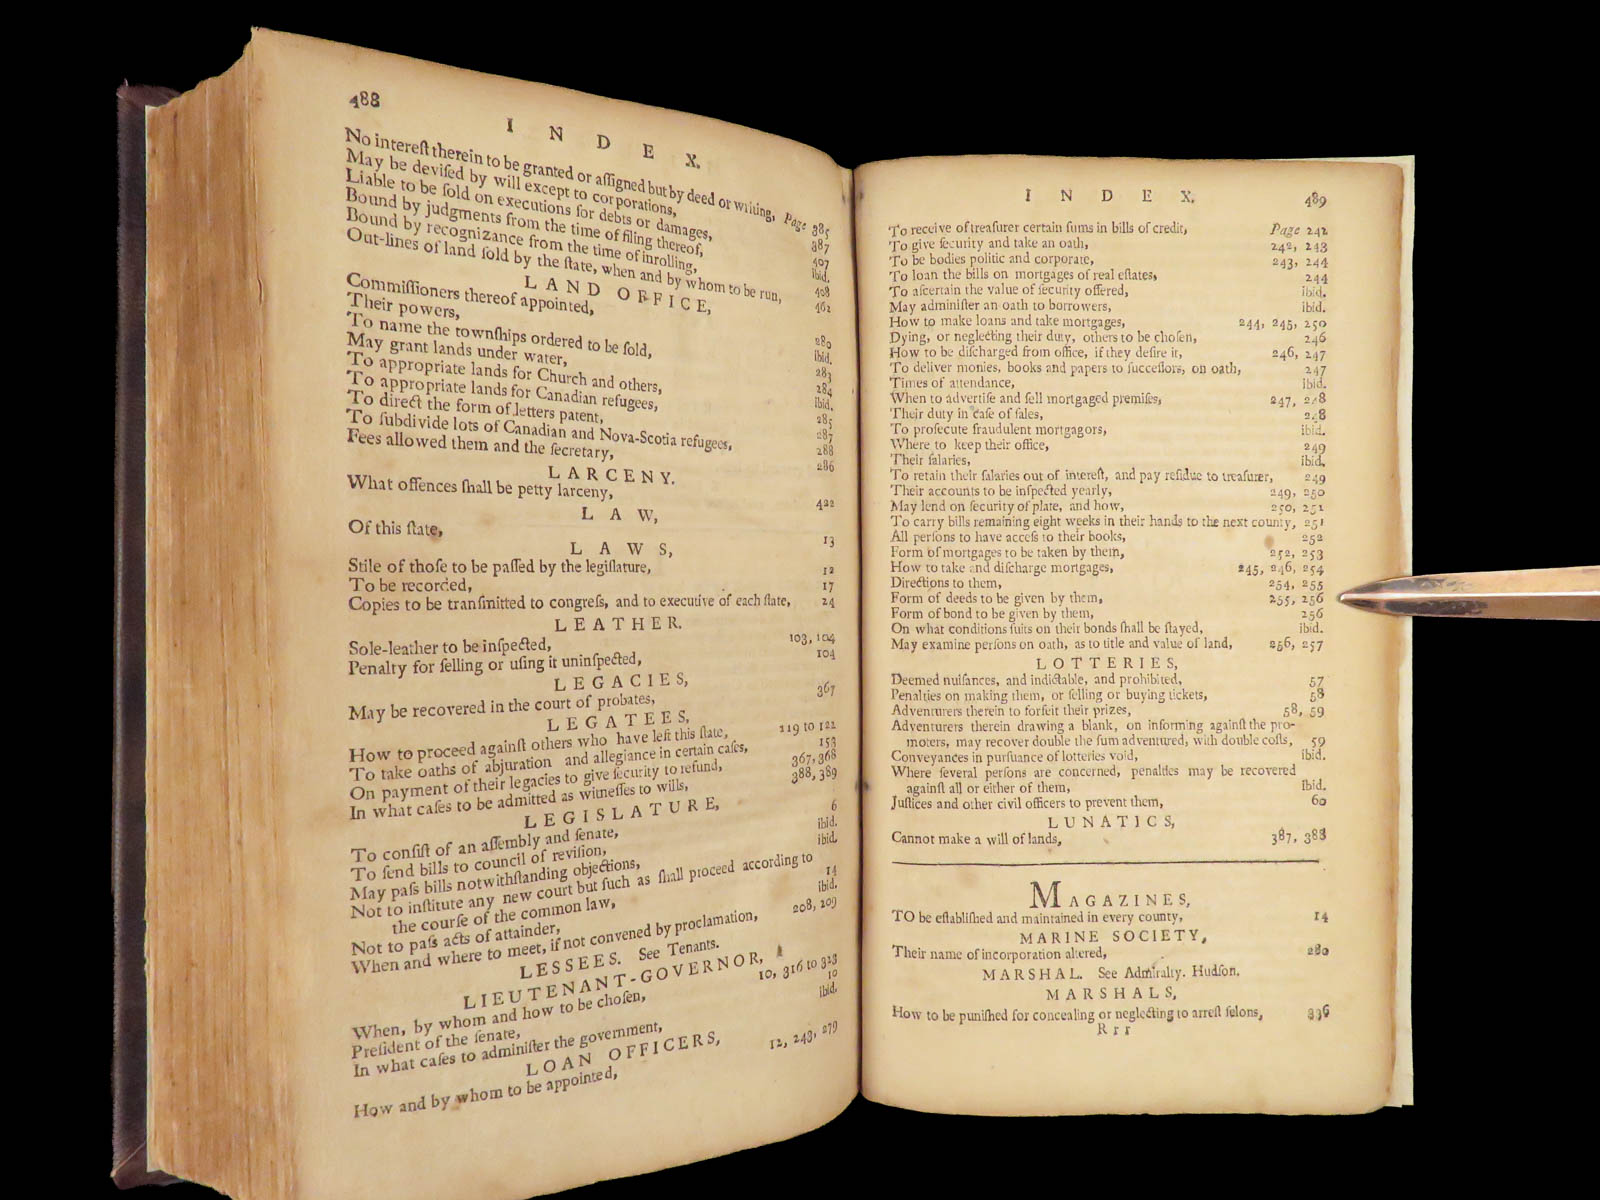 488
INDEX.
No intereſt therein to be granted or aſſigned but by deed or writing, Page 385
May be deviſed by will except to corporations, 387
Liable to be ſold on executions for debts or damages, 407
Bound by judgments from the time of filing thereof, ibid.
Bound by recognizance from the time of inrolling, 408
Out-lines of land ſold by the ſtate, when and by whom to be run, 462
LAND OFFICE,
Commiſſioners thereof appointed, 280
Their powers, ibid.
To name the townſhips ordered to be ſold, 283
May grant lands under water, 284
To appropriate lands for Church and others, ibid.
To appropriate lands for Canadian refugees, 285
To direct the form of letters patent, 287
To ſubdivide lots of Canadian and Nova-Scotia refugees, 288
Fees allowed them and the ſecretary, 286
LARCENY.
What offences ſhall be petty larceny, 422
LAW,
Of this ſtate, 13
LAWS,
Stile of thoſe to be paſſed by the legiſlature, 12
To be recorded, 17
Copies to be tranſmitted to congreſs, and to executive of each ſtate, 24
LEATHER.
Sole-leather to be inſpected, 103, 104
Penalty for ſelling or uſing it uninſpected, 104
LEGACIES,
May be recovered in the court of probates, 367
LEGATEES,
How to proceed againſt others who have left this ſtate, 119 to 122
To take oaths of abjuration and allegiance in certain caſes, 153
On payment of their legacies to give ſecurity to refund, 367, 368
In what caſes to be admitted as witneſſes to wills, 388, 389
LEGISLATURE,
To conſiſt of an aſſembly and ſenate, 6
To ſend bills to council of reviſion, ibid.
May paſs bills notwithſtanding objections, ibid.
Not to inſtitute any new court but ſuch as ſhall proceed according to
the courſe of the common law, 14
Not to paſs acts of attainder, ibid.
When and where to meet, if not convened by proclamation, 208, 209
LESSEES. See Tenants.
LIEUTENANT-GOVERNOR,
When, by whom and how to be choſen, 10, 316 to 323
Preſident of the ſenate, 10
In what caſes to adminiſter the government, ibid.
LOAN OFFICERS,
How and by whom to be appointed, 12, 243, 279
INDEX. 489
To receive of treaſurer certain ſums in bills of credit, Page 242
To give ſecurity and take an oath, 242, 243
To be bodies politic and corporate, 243, 244
To loan the bills on mortgages of real eſtates, 244
To aſcertain the value of ſecurity offered, ibid.
May adminiſter an oath to borrowers, ibid.
How to make loans and take mortgages, 244, 245, 250
Dying, or neglecting their duty, others to be choſen, 246
How to be diſcharged from office, if they deſire it, 246, 247
To deliver monies, books and papers to ſucceſſors, on oath, 247
Times of attendance, ibid.
When to advertiſe and ſell mortgaged premiſes, 247, 248
Their duty in caſe of ſales, 248
To proſecute fraudulent mortgagors, ibid.
Where to keep their office, 249
Their ſalaries, ibid.
To retain their ſalaries out of intereſt, and pay reſidue to treaſurer, 249
Their accounts to be inſpected yearly, 249, 250
May lend on ſecurity of plate, and how, 250, 251
To carry bills remaining eight weeks in their hands to the next county, 251
All perſons to have acceſs to their books, 252
Form of mortgages to be taken by them, 252, 253
How to take and diſcharge mortgages, 245, 246, 254
Directions to them, 254, 255
Form of deeds to be given by them, 255, 256
Form of bond to be given by them, 256
On what conditions ſuits on their bonds ſhall be ſtayed, ibid.
May examine perſons on oath, as to title and value of land, 256, 257
LOTTERIES,
Deemed nuiſances, and indictable, and prohibited, 57
Penalties on making them, or ſelling or buying tickets, 58
Adventurers therein to forfeit their prizes, 58, 59
Adventurers therein drawing a blank, on informing againſt the pro-
moters, may recover double the ſum adventured, with double coſts, 59
Conveyances in purſuance of lotteries void, ibid.
Where ſeveral perſons are concerned, penalties may be recovered
againſt all or either of them, ibid.
Juſtices and other civil officers to prevent them, 60
LUNATICS,
Cannot make a will of lands, 387, 388
MAGAZINES,
TO be eſtabliſhed and maintained in every county, 14
MARINE SOCIETY,
Their name of incorporation altered, 280
MARSHAL. See Admiralty. Hudſon.
MARSHALS,
How to be puniſhed for concealing or neglecting to arreſt felons, 336
Rrr